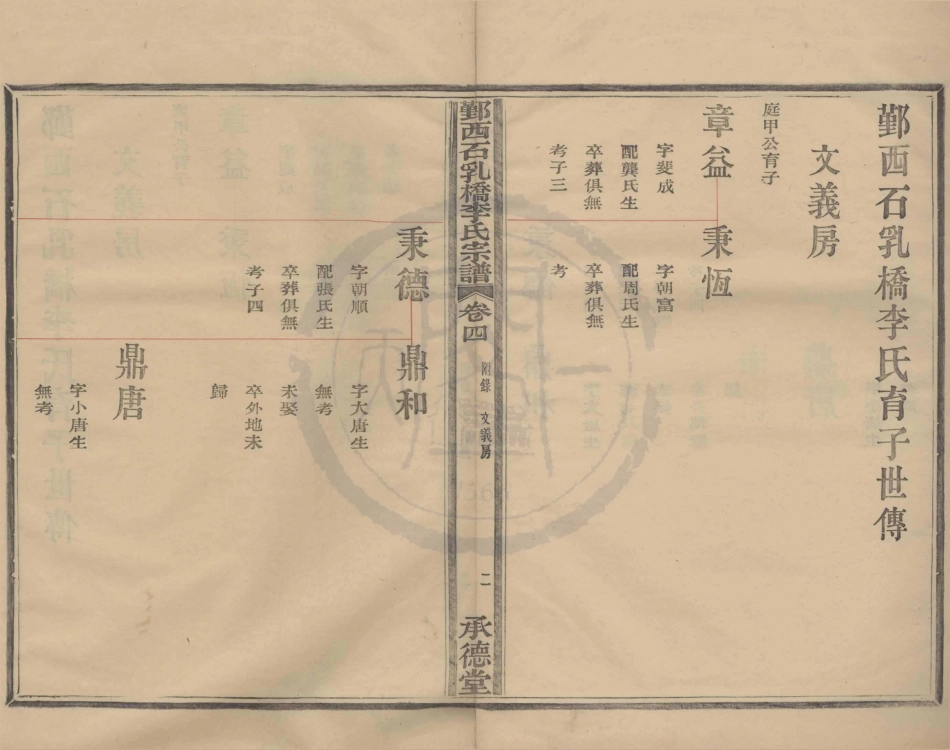 鄞西石乳橋李氏育子世傳
文義房
庭甲公育子
章益
字斐成
配龔氏生
卒葬俱無
考子三
秉恆
字朝富
配周氏生
卒葬俱無
考
鄞西石乳橋李氏宗譜
卷四
附錄
文義房
二
承德堂
秉德
字朝順
配張氏生
卒葬俱無
考子四
鼎和
字大唐生
無考
未娶
卒外地未
歸
鼎唐
字小唐生
無考